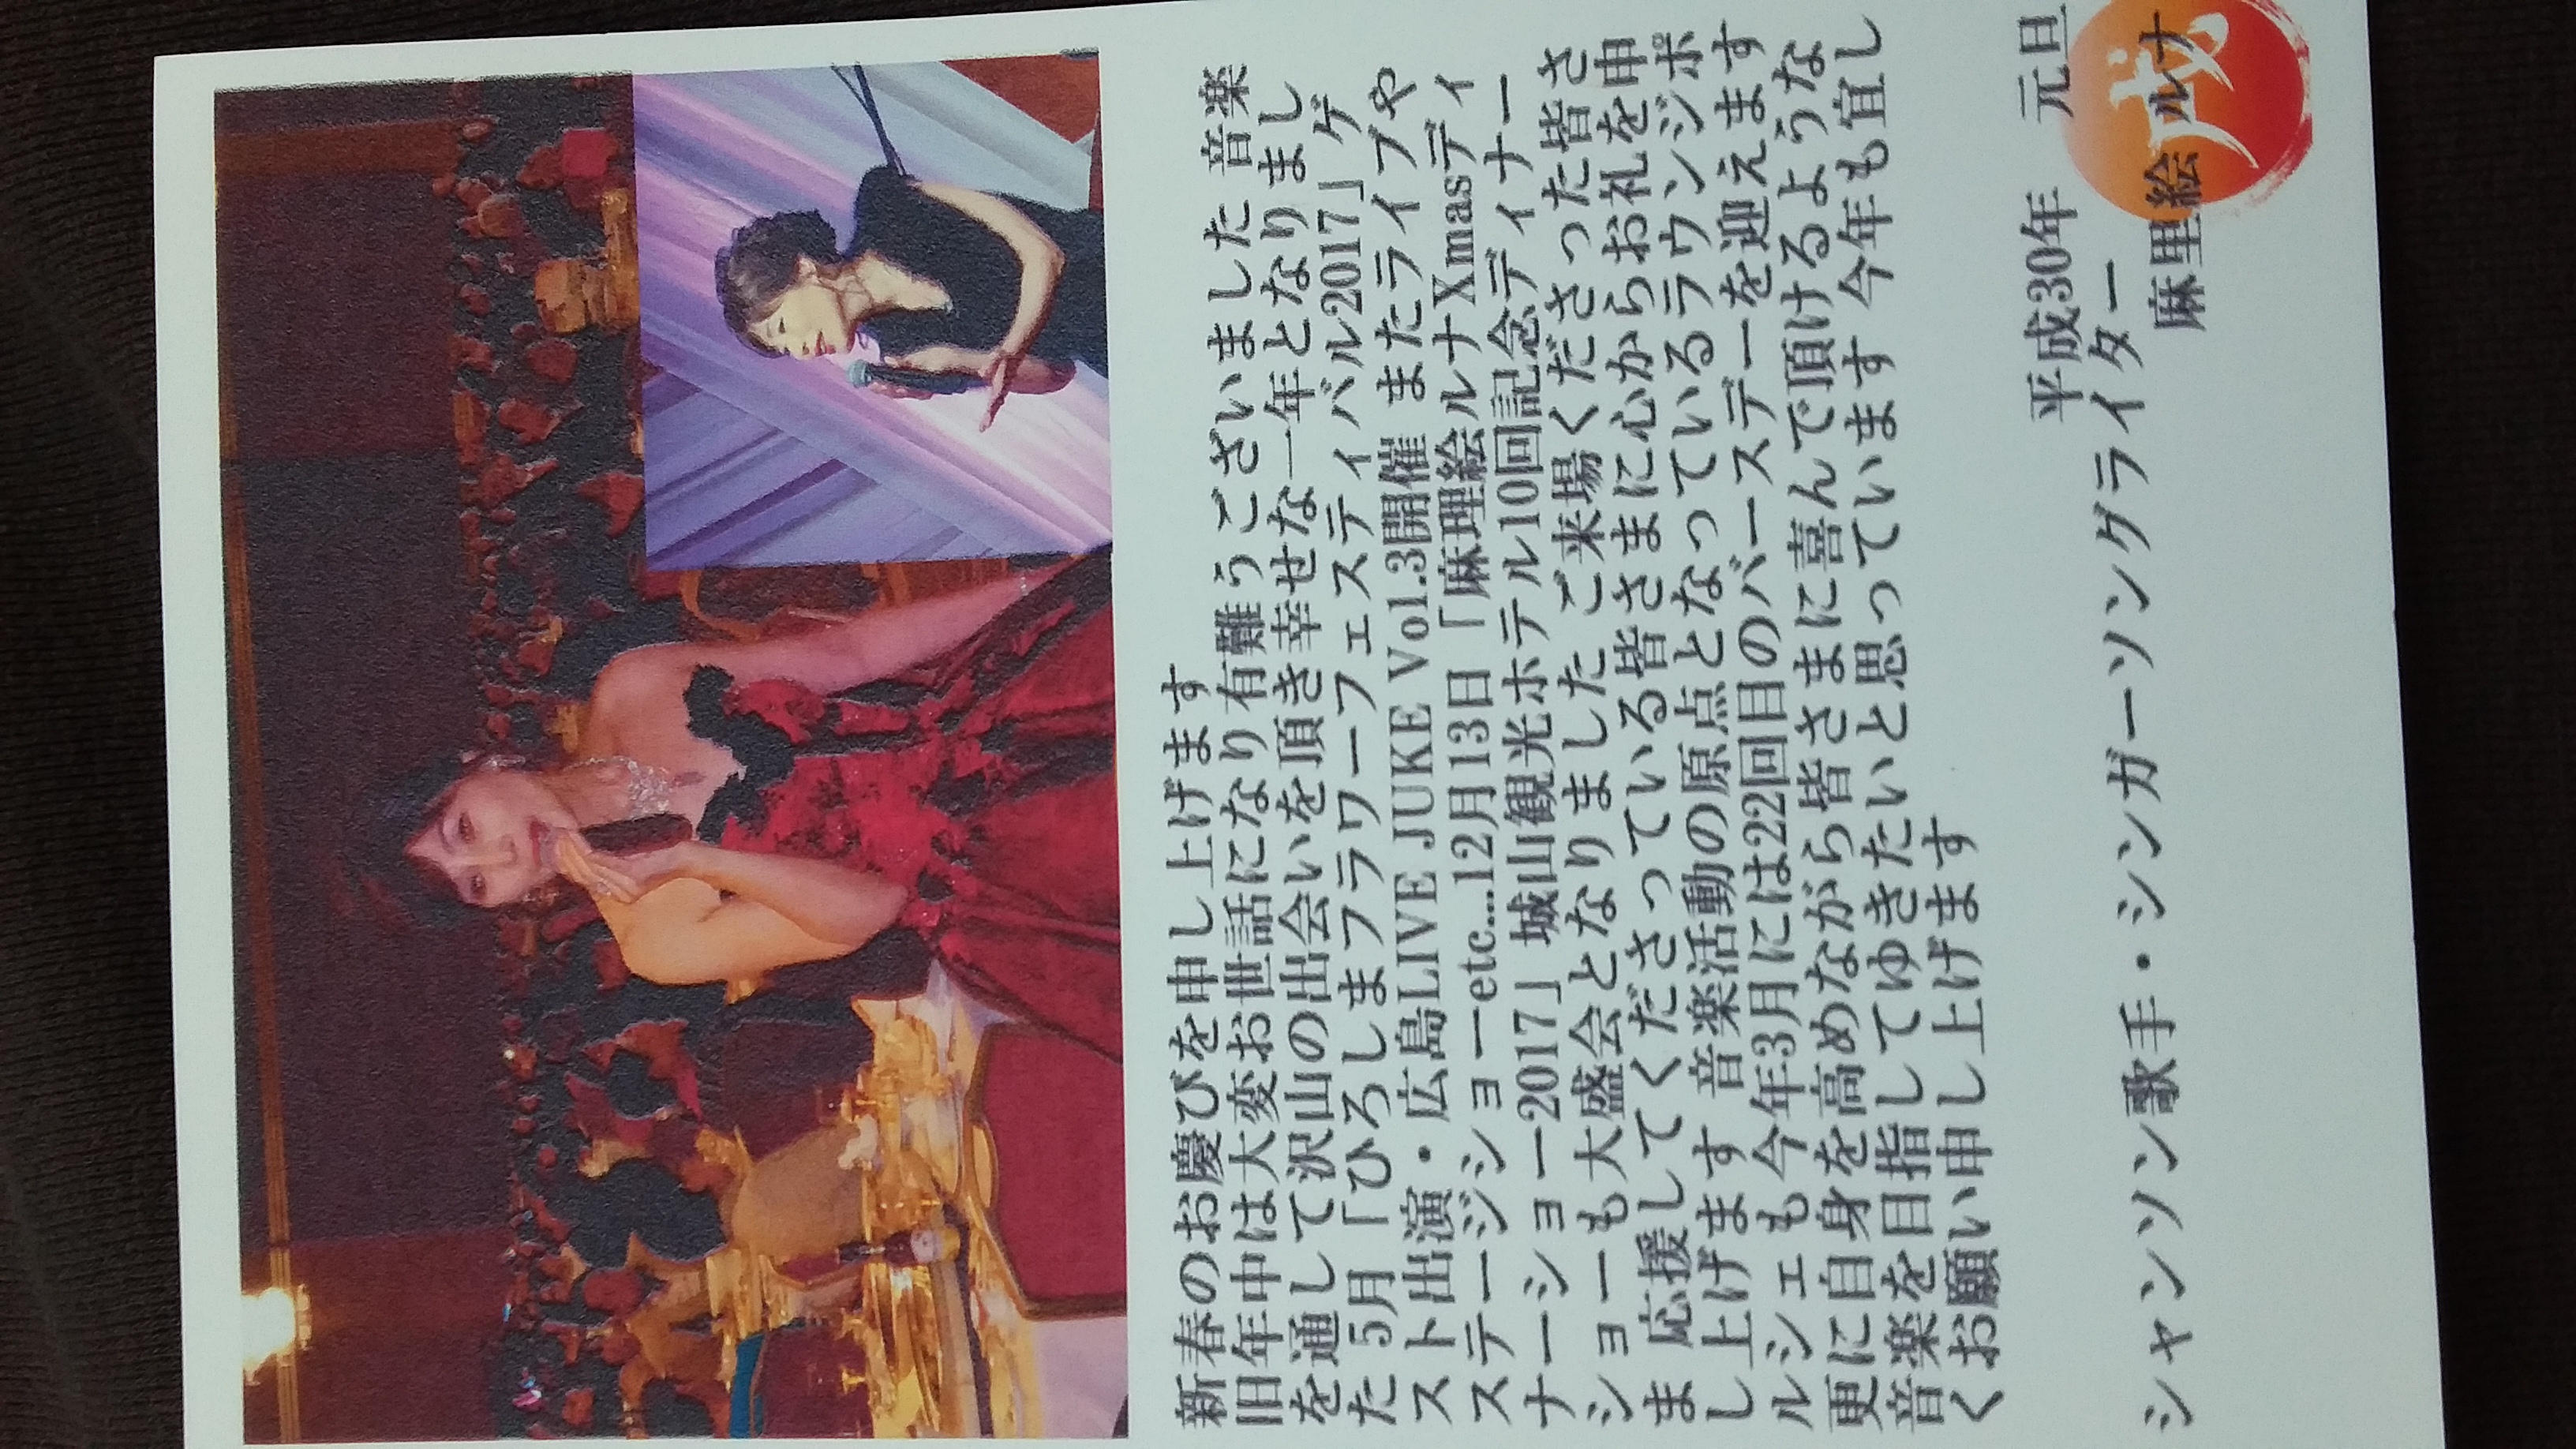 新春のお慶びを申し上げます
旧年中は大変お世話になり有難うございました 音楽
を通して沢山の出会いを頂き幸せな一年となりまし
た 5月「ひろしまフラワーフェスティバル2017」ゲ
スト出演・広島LIVE JUKE Vol.3開催 またライブや
ステージショーetc...12月13日「麻理絵ルナXmasディ
ナーショー2017」城山観光ホテル10回記念ディナー
ショーも大盛会となりました ご来場くださった皆さ
ま 応援してくださっている皆さまに心からお礼を申
し上げます 音楽活動の原点となっているラウンジポ
ルシェも今年3月には22回目のバースデーを迎えます
更に自身を高めながら皆さまに喜んで頂けるような
音楽を目指してゆきたいと思っています 今年も宜し
くお願い申し上げます
平成30年 元旦
シャンソン歌手・シンガーソングライター
麻里絵ルナ
戌